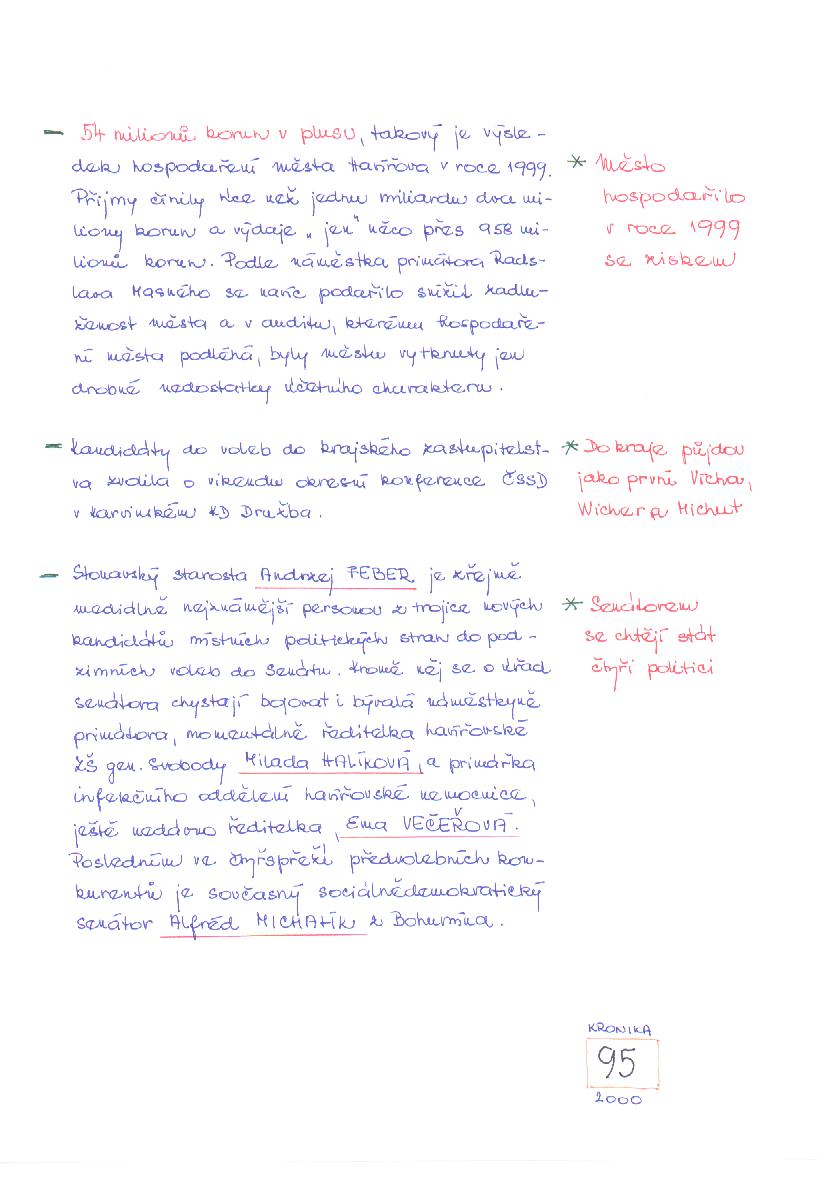 – 54 milionů korun v plusu, takový je výsle-
dek hospodaření města Havířova v roce 1999.
Příjmy činily více než jednu miliardu dva mi-
liony korun a výdaje „jen" něco přes 958 mi-
lionů korun. Podle náměstka primátora Rads-
lava Masného se navíc podařilo snížit zadlu-
ženost města a v auditu, kterému hospodaře-
ní města podléhá, byly městu vytknuty jen
drobné nedostatky účetního charakteru.
* Město
hospodařilo
v roce 1999
se ziskem
– Kandidáty do voleb do krajského zastupitelst-
va zvolila o víkendu okresní konference ČSSD
v karvinském KD Družba.
* Do kraje půjdou
jako první Vícha,
Wicher a Michut
– Stonavský starosta Andrzej FEBER je zřejmě
mediálně nejznámější personou z trojice nových
kandidátů místních politických stran do pod-
zimních voleb do Senátu. Kromě něj se o úřad
senátora chystají bojovat i bývalá náměstkyně
primátora, momentálně ředitelka havířovské
ZŠ gen. Svobody Milada HALÍKOVÁ, a primářka
infekčního oddělení havířovské nemocnice,
ještě nedávno ředitelka, Ema VEČEŘOVÁ.
Posledním ve čtyřspřeží předvolebních kon-
kurentů je současný sociálnědemokratický
senátor Alfréd MICHALÍK z Bohumína.
* Senátorem
se chtějí stát
čtyři politici
KRONIKA
95
2000